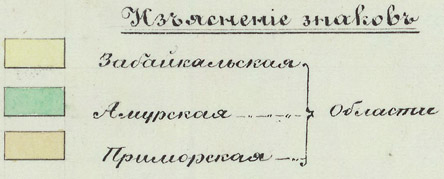 Изъясненіе знаковъ
Забайкальская
Амурская
Области
Приморская